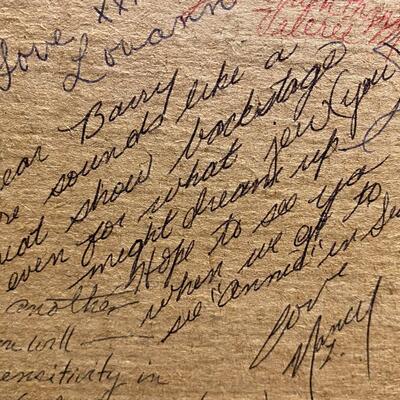 Love xxx
Louann
ear Barry
re sounds like a
eat show backstage
even for what jew (you)
might dream up
Hope to see ya
when we get to
see "Annie" in Se
Love
Nancy
another
ou will
ensitivity in